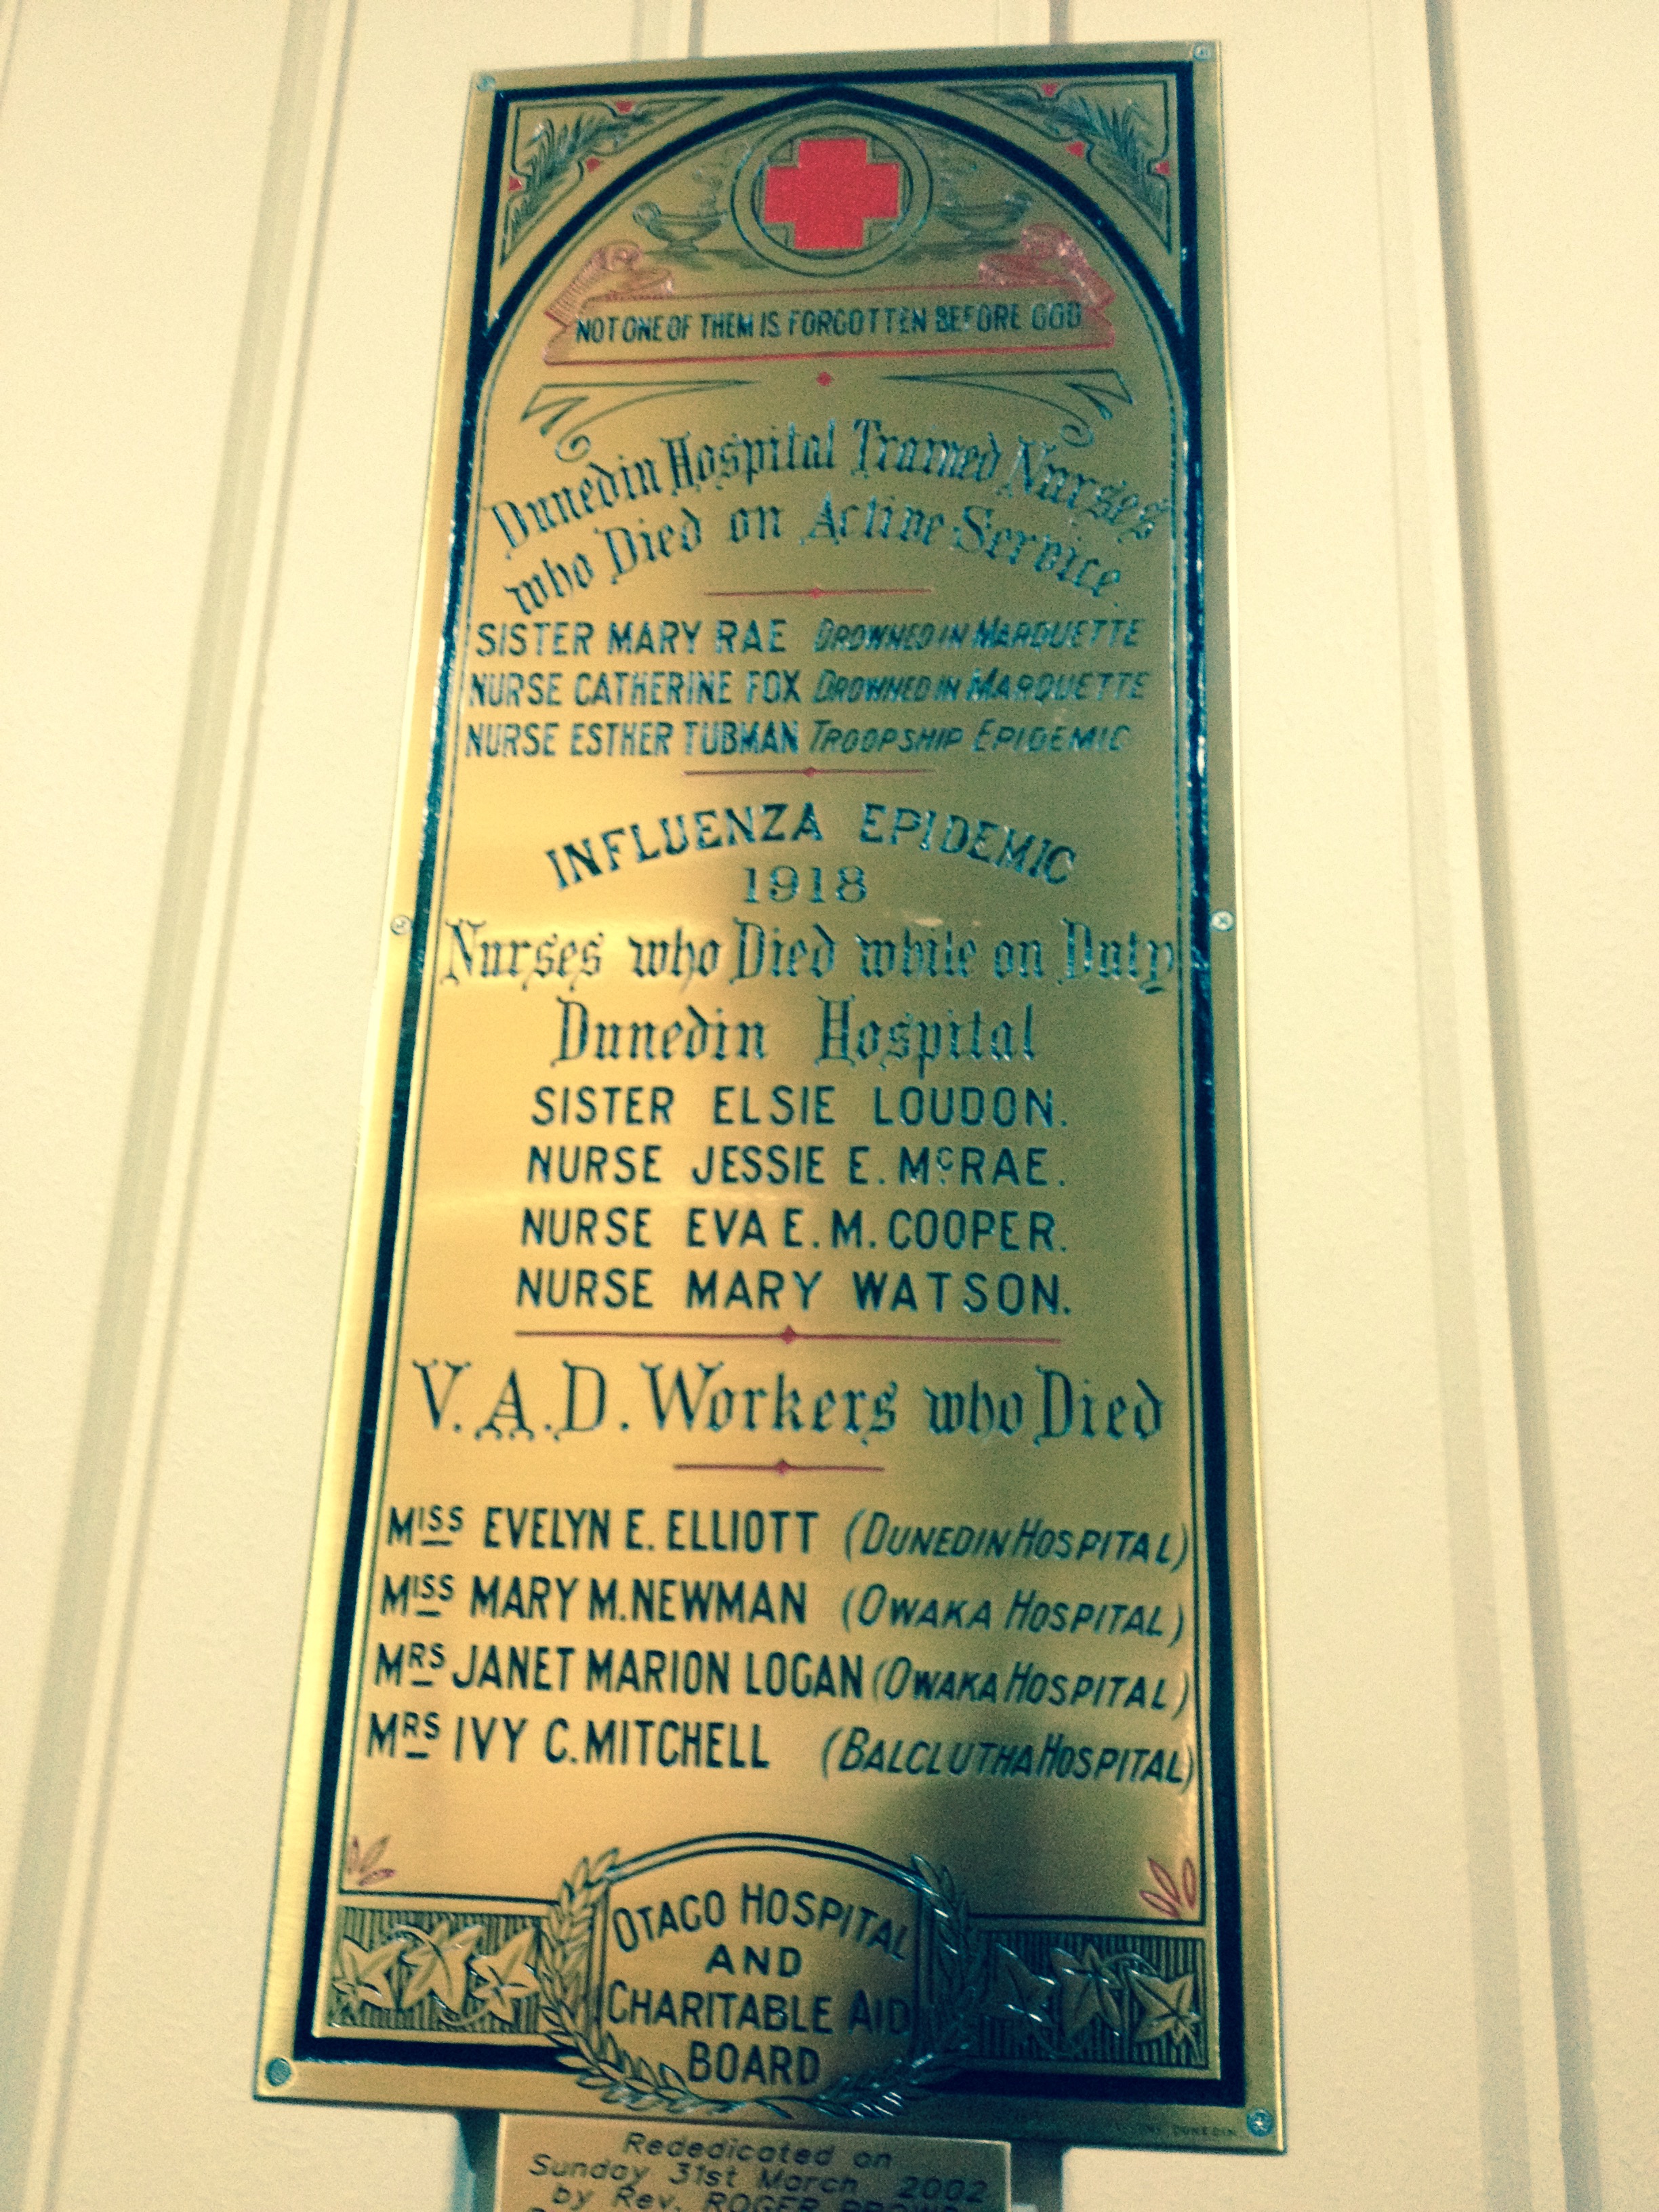 NOT ONE OF THEM IS FORGOTTEN BEFORE GOD
Dunedin Hospital Trained Nurses
who Died on Active Service.
SISTER MARY RAE DROWNED IN MARQUETTE
NURSE CATHERINE FOX DROWNED IN MARQUETTE
NURSE ESTHER TUBMAN TROOPSHIP EPIDEMIC
INFLUENZA EPIDEMIC
1918
Nurses who Died while on Duty
Dunedin Hospital
SISTER ELSIE LOUDON.
NURSE JESSIE E. McRAE.
NURSE EVA E. M. COOPER.
NURSE MARY WATSON.
V.A.D. Workers who Died
MISS EVELYN E. ELLIOTT (DUNEDIN HOSPITAL)
MISS MARY M. NEWMAN (OWAKA HOSPITAL)
MRS JANET MARION LOGAN (OWAKA HOSPITAL)
MRS IVY C. MITCHELL (BALCLUTHA HOSPITAL)
OTAGO HOSPITAL
AND
CHARITABLE AID
BOARD
DUNEDIN
Rededicated on
Sunday 31st March 2002
by Rev. ROGER